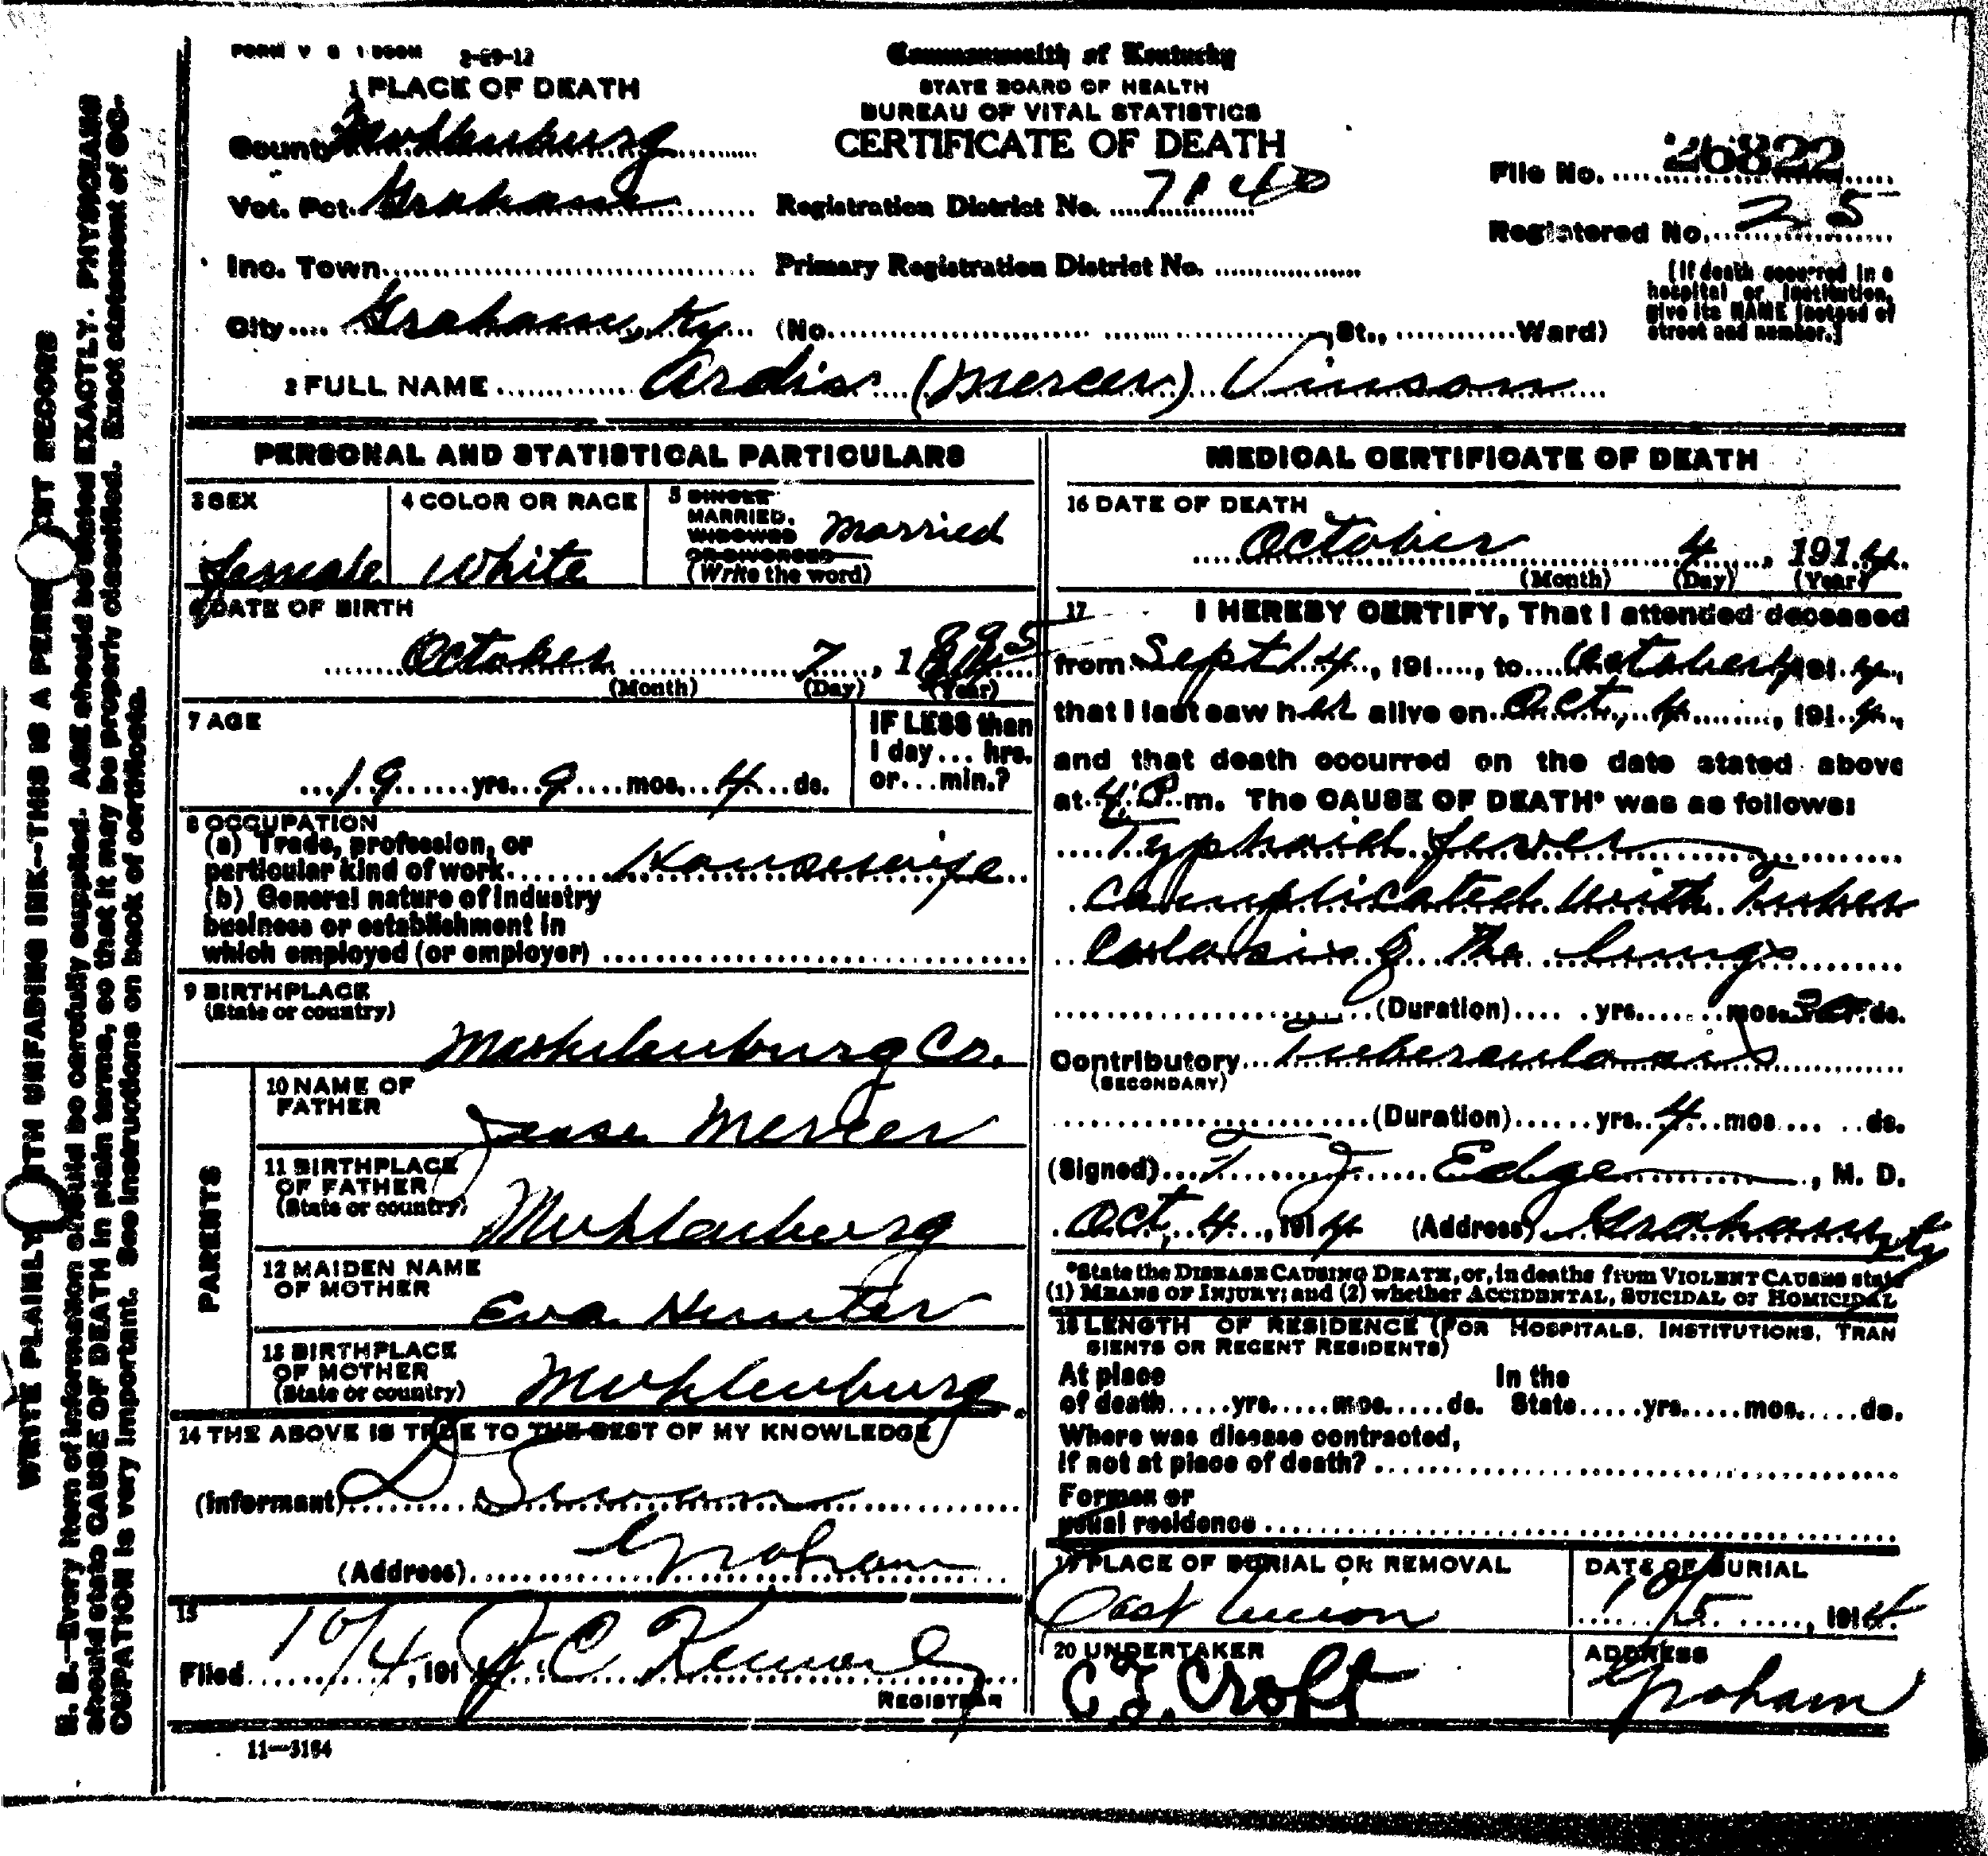 FORM V S 1 350M 2-29-12
Commonwealth of Kentucky
STATE BOARD OF HEALTH
BUREAU OF VITAL STATISTICS
CERTIFICATE OF DEATH
1 PLACE OF DEATH
County Muhlenburg
Vot. Pct. Graham Registration District No. 7140
File No. 26822
Registered No. 25
Inc. Town Primary Registration District No.
City Graham, Ky (No. St., Ward)
[If death occurred in a hospital or institution, give its NAME instead of street and number.]
2 FULL NAME Ardis (Mercer) Vinson
PERSONAL AND STATISTICAL PARTICULARS
3 SEX
female
4 COLOR OR RACE
White
5 SINGLE
MARRIED,
WIDOWED
OR DIVORCED
(Write the word)
Married
6 DATE OF BIRTH
October 7, 1895
(Month) (Day) (Year)
7 AGE
19 yrs. 9 mos. 4 ds.
IF LESS than
1 day... hrs.
or... min.?
8 OCCUPATION
(a) Trade, profession, or
particular kind of work Housewife
(b) General nature of industry
business or establishment in
which employed (or employer)
9 BIRTHPLACE
(State or country)
Muhlenburg Co.
PARENTS
10 NAME OF
FATHER
Jesse Mercer
11 BIRTHPLACE
OF FATHER
(State or country)
Muhlenburg
12 MAIDEN NAME
OF MOTHER
Eva Hunter
13 BIRTHPLACE
OF MOTHER
(State or country)
Muhlenburg
14 THE ABOVE IS TRUE TO THE BEST OF MY KNOWLEDGE
(Informant) D Swan
(Address) Graham
15
Filed 10/4, 191 J. C.
REGISTRAR
11—3184
MEDICAL CERTIFICATE OF DEATH
16 DATE OF DEATH
October 4, 1914
(Month) (Day) (Year)
17 I HEREBY CERTIFY, That I attended deceased
from Sept 14, 191, to October 4 1914,
that I last saw her alive on Oct, 4, 1914,
and that death occurred on the date stated above
at 4 P.m. The CAUSE OF DEATH* was as follows:
Typhoid fever
Complicated with Tuber
culosis of the lungs
(Duration) yrs. mos. ds.
Contributory Tuberculosis
(SECONDARY)
(Duration) yrs. 4 mos ds.
(Signed) T J Edge, M. D.
Oct, 4, 1914 (Address) Graham Ky
*State the DISEASE CAUSING DEATH, or, in deaths from VIOLENT CAUSES state
(1) MEANS OF INJURY; and (2) whether ACCIDENTAL, SUICIDAL or HOMICIDAL
18 LENGTH OF RESIDENCE (FOR HOSPITALS, INSTITUTIONS, TRAN
SIENTS OR RECENT RESIDENTS)
At place In the
of death yrs. mos. ds. State yrs. mos. ds.
Where was disease contracted,
If not at place of death?
Former or
usual residence
19 PLACE OF BURIAL OR REMOVAL
East Union
DATE OF BURIAL
10/5, 1914
20 UNDERTAKER
C. J. Croft
ADDRESS
Graham
WRITE PLAINLY WITH UNFADING INK--THIS IS A PERMANENT RECORD
N. B.—Every item of information should be carefully supplied. AGE should be stated EXACTLY. PHYSICIANS
should state CAUSE OF DEATH in plain terms, so that it may be properly classified. Exact statement of OC-
CUPATION is very important. See instructions on back of certificate.